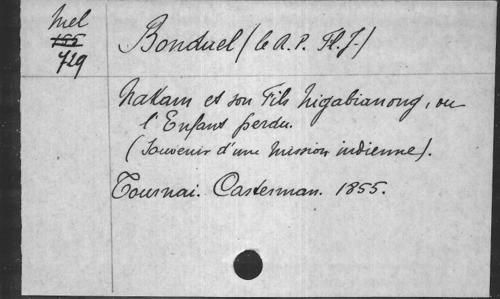 Mel
155
729
Bonduel (le R. P. Fl. J.)
Nakam et son Fils Nigabianong, ou
l'Enfant perdu.
(Souvenir d'une mission indienne).
Tournai. Casterman. 1855.